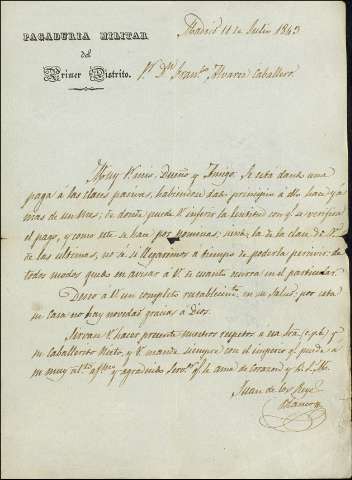 PAGADURIA MILITAR
del
Primer Distrito.
Madrid 11 de Julio 1843
Sr. Dn. Fran.co Alvarez Caballero.
Muy Sr. mio, Dueño y Amigo: Se está dando una
paga á las clases pasivas, habiendose dado principio á ello hace ya
mas de un mes; de donde puede V. inferir la lentitud con q.e se verifica
el pago, y como este se hace por nominas, siendo la de la clase de V.
de las ultimas, no sé si llegaremos a tiempo de poderla percivir: de
todos modos quedo en avisar á V. de cuanto ocurra en el particular.
Deseo á V. un completo restablecim.to en su salud; por esta
su casa no hay novedad gracias a Dios.
Sirvase V. hacer presente nuestros respetos a esa Sra. (c.p.b.) y
su caballerito Nieto, y V. mande siempre con el imperio q.e puede a
su muy at.to af.mo y agradecido Serv.or q.e le ama de corazon y b. S. M.
Juan de los Reyes